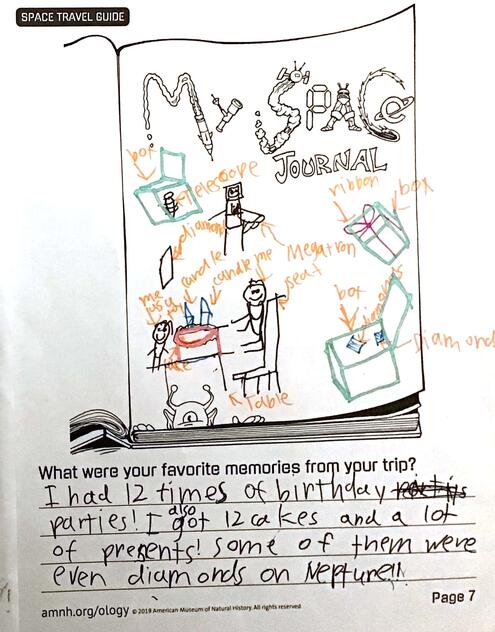 SPACE TRAVEL GUIDE
My SPACE
JOURNAL
box
Telescope
ribbon
box
diamond
Megatron
candle
candle
me
seat
me
box
diamonds
diamond
Table
What were your favorite memories from your trip?
I had 12 times of birthday
parties! I also got 12 cakes and a lot
of presents! some of them were
even diamonds on Neptune!!
amnh.org/ology © 2019 American Museum of Natural History. All rights reserved.
Page 7